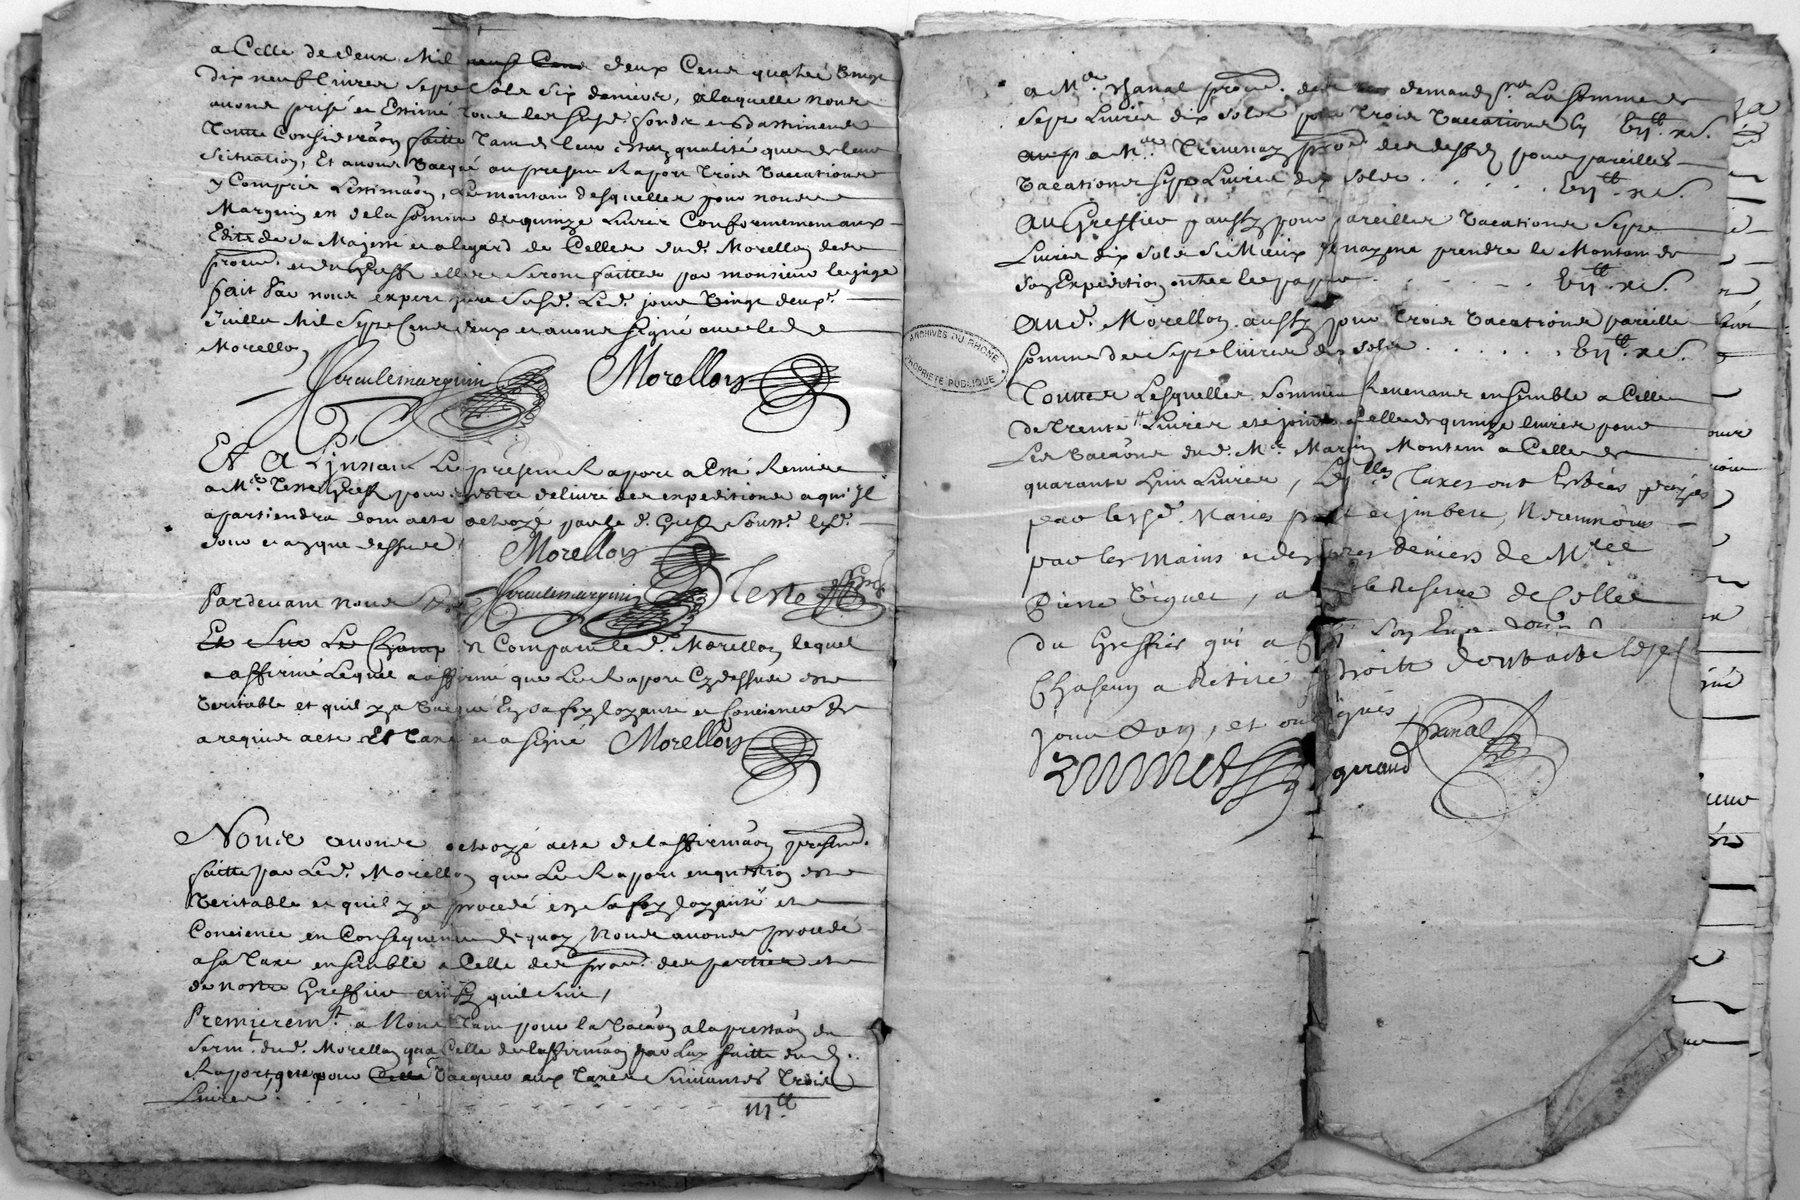 a Celle de deux Mil neuf Cens deux Cens quatre vingt
dix neuf livres sept sols six deniers, a laquelle nous
avons prisé et Estimé tous les susd. fonds et bastiments
toutte Consideraôn faitte tant de leur estat, qualité que de leur
scituation, Et avons vacqué au present Raport trois vaccations
y Compris Lestimaôn, Le montant desquelles pour nous
Marguin est de la somme de quinze Livres Conformement aux
Edits de sa Majesté et a legard de Celles dud. Morellon des
procur. et du Greff. elles seront faittes par monsieur le juge
fait Par nous expert juré susd. Led. jour vingt deux.
Juillet Mil Sept Cens deux et avons signé avec led.
Morellon
Morellon
Et A L'jnstant Le present Raport a Esté Remis
a Mre. Teste Greff. pour estre delivré des expeditions a qui jl
apartiendra dont acte octroyé par le d. Greff. Souss. lesd.
jour et an que dessus
Morellon
Teste
Pardevant nous
Et Sur Le Champ Comparu le d. Morellon lequel
a affirmé Lequel a affirmé que Le Raport Cy dessus est
veritable et quil y a vacqué En sa foy loyauté et Concience
a requis acte Et taxe et a signé Morellon
Nous avons octroyé acte de laffirmaôn presente.
faitte par Led. Morellon que Le Raport en question est
veritable et quil y a procedé en sa foy loyauté et
Concience en Consequence de quoy Nous avons procedé
a sa taxe ensemble a Celle des procur. des parties et
de nostre Greffier ainsy quil suit,
Premierem.t a Nous tant pour la vacaôn a la prestaôn du
serm.t dud. Morellon qua Celle de laffirmaôn par Luy faitte dud.
Raport que pour Celle vacquer aux taxes suivantes trois
Livres iij ll
a Mre. Panal procur. des demand.rs La somme de
sept Livres dix sols pour trois vaccations Cy vij ll. x s.
a Mre. procur. des deffend. pour pareilles
vacations sept Livres dix sols vij ll. x s.
Au Greffier aussy pour pareilles vacations sept
Livres dix sols si Mieux prendre le Montant de
son Expedition outre le papier vij ll. x s.
Aud. Morellon aussy pour trois vacations pareille
somme de sept livres dix sols vij ll. x s.
ARCHIVES DU RHONE
PROPRIETE PUBLIQUE
Touttes Lesquelles sommes Revenant ensemble a Celle
de trente Livres et jointe a Celle de quinze livres pour
Les vacaôns dud. Mre. Marguin Montent a Celle de
quarante Livres, Taxes ont Estées payés
par
par les Mains et des deniers de
Pierre , a la Reserve de Celle
du Greffier qui a sur son Exp.
Chascun a Retiré
jour &amp; an, et ont signés
Panal
geraud